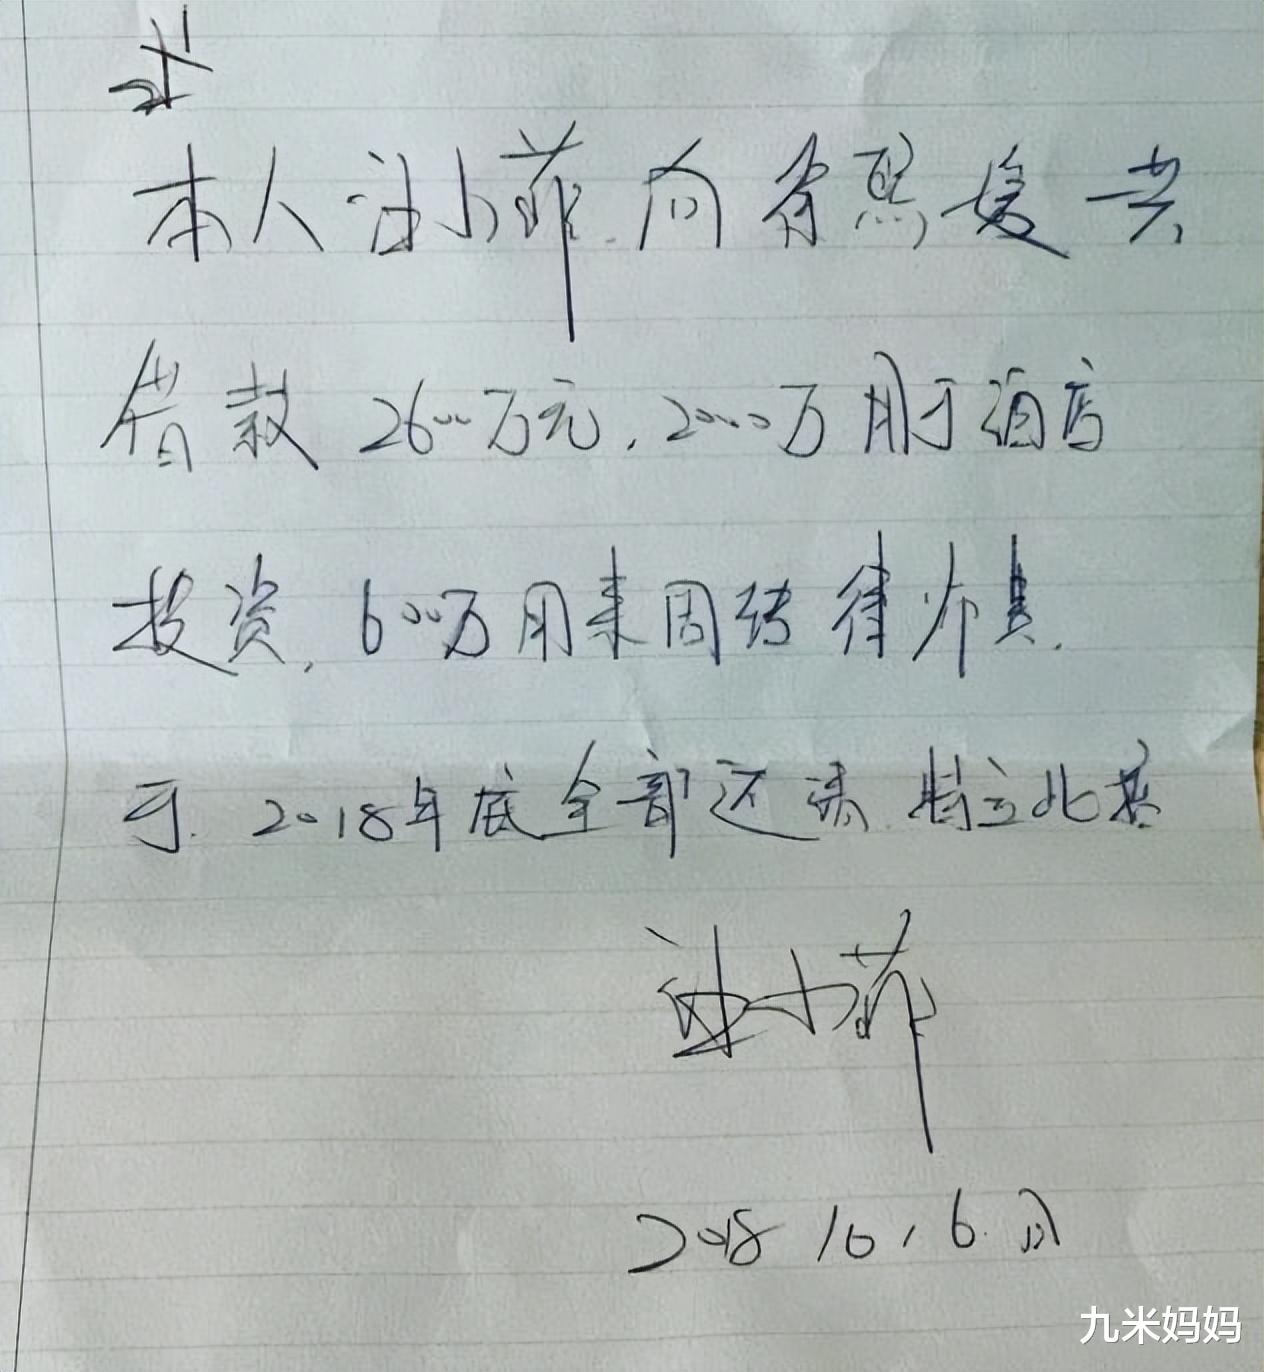 本人汪小菲向徐熙媛共
借款2600万元，2000万用于酒店
投资，600万用来周转律师费.
于.2018年底全部还清.特立此据
汪小菲
2018 10，6.
九米妈妈